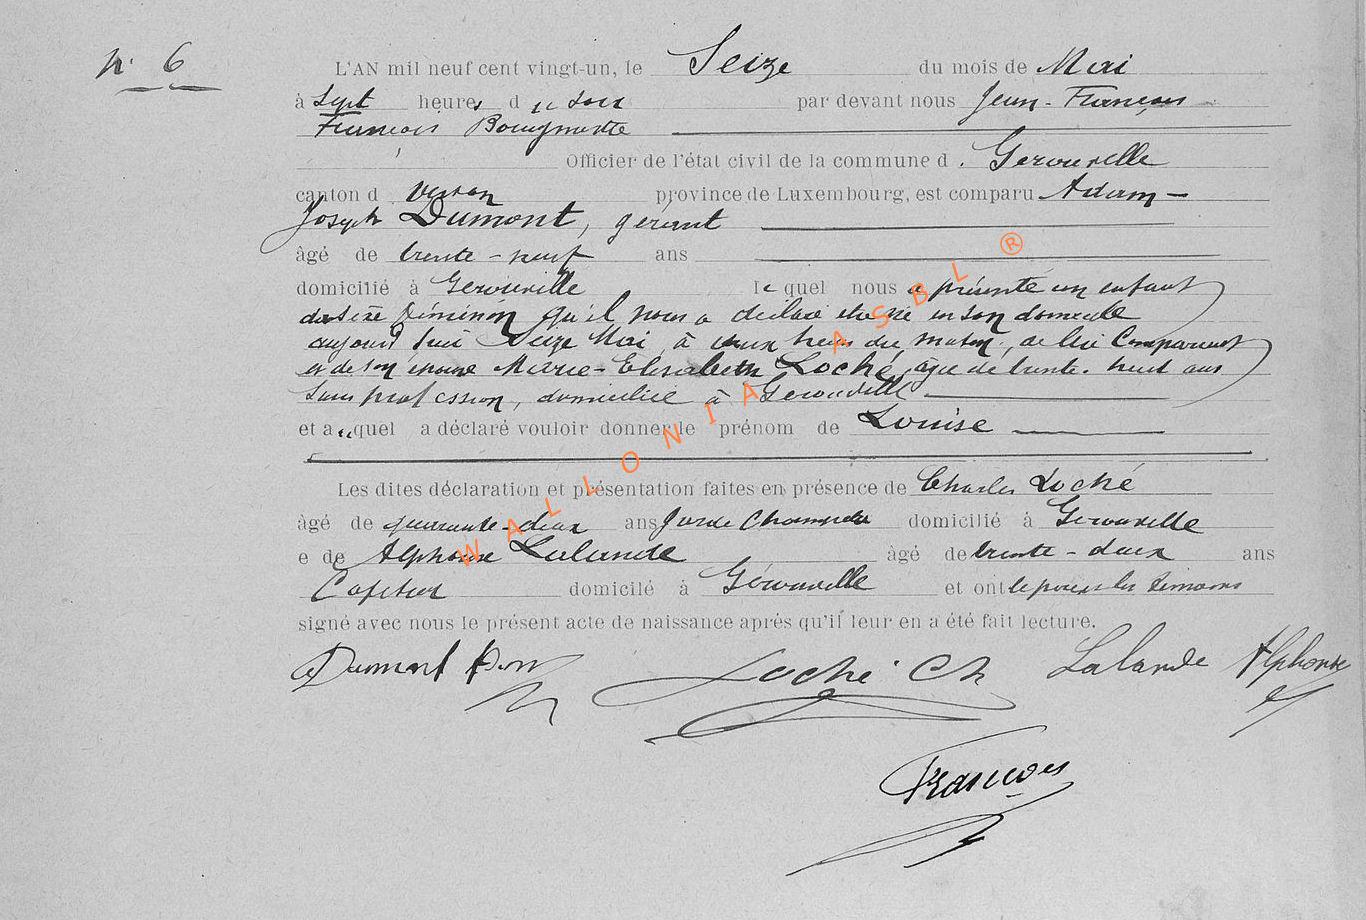 n. 6
L'AN mil neuf cent vingt-un, le Seize du mois de Mai
à Sept heures d u soir par devant nous Jean-François
François Bourgmestre
Officier de l'état civil de la commune d . Gérouville
canton d Virton province de Luxembourg, est comparu Adam-
Joseph Dumont, gérant
âgé de trente-neuf ans
domicilié à Gérouville le quel nous a présenté un enfant
du sexe féminin qu'il nous a déclaré être né en son domicile
aujourd'hui Seize Mai, à heures du matin, de lui Comparant
et de son épouse Marie-Elisabeth Loché, âgée de trente-huit ans
sans profession, domiciliée à Gérouville
et a u quel a déclaré vouloir donner le prénom de Louise
Les dites déclaration et présentation faites en présence de Charles Loché
âgé de quarante-deux ans Garde Champêtre domicilié à Gérouville
e de Alphonse Lalande âgé de trente-deux ans
Cafetier domicilé à Gérouville et ont le père et les témoins
signé avec nous le présent acte de naissance après qu'il leur en a été fait lecture.
Dumont
Loché Ch
Lalande Alphonse
François
WALLONIA ASBL ®